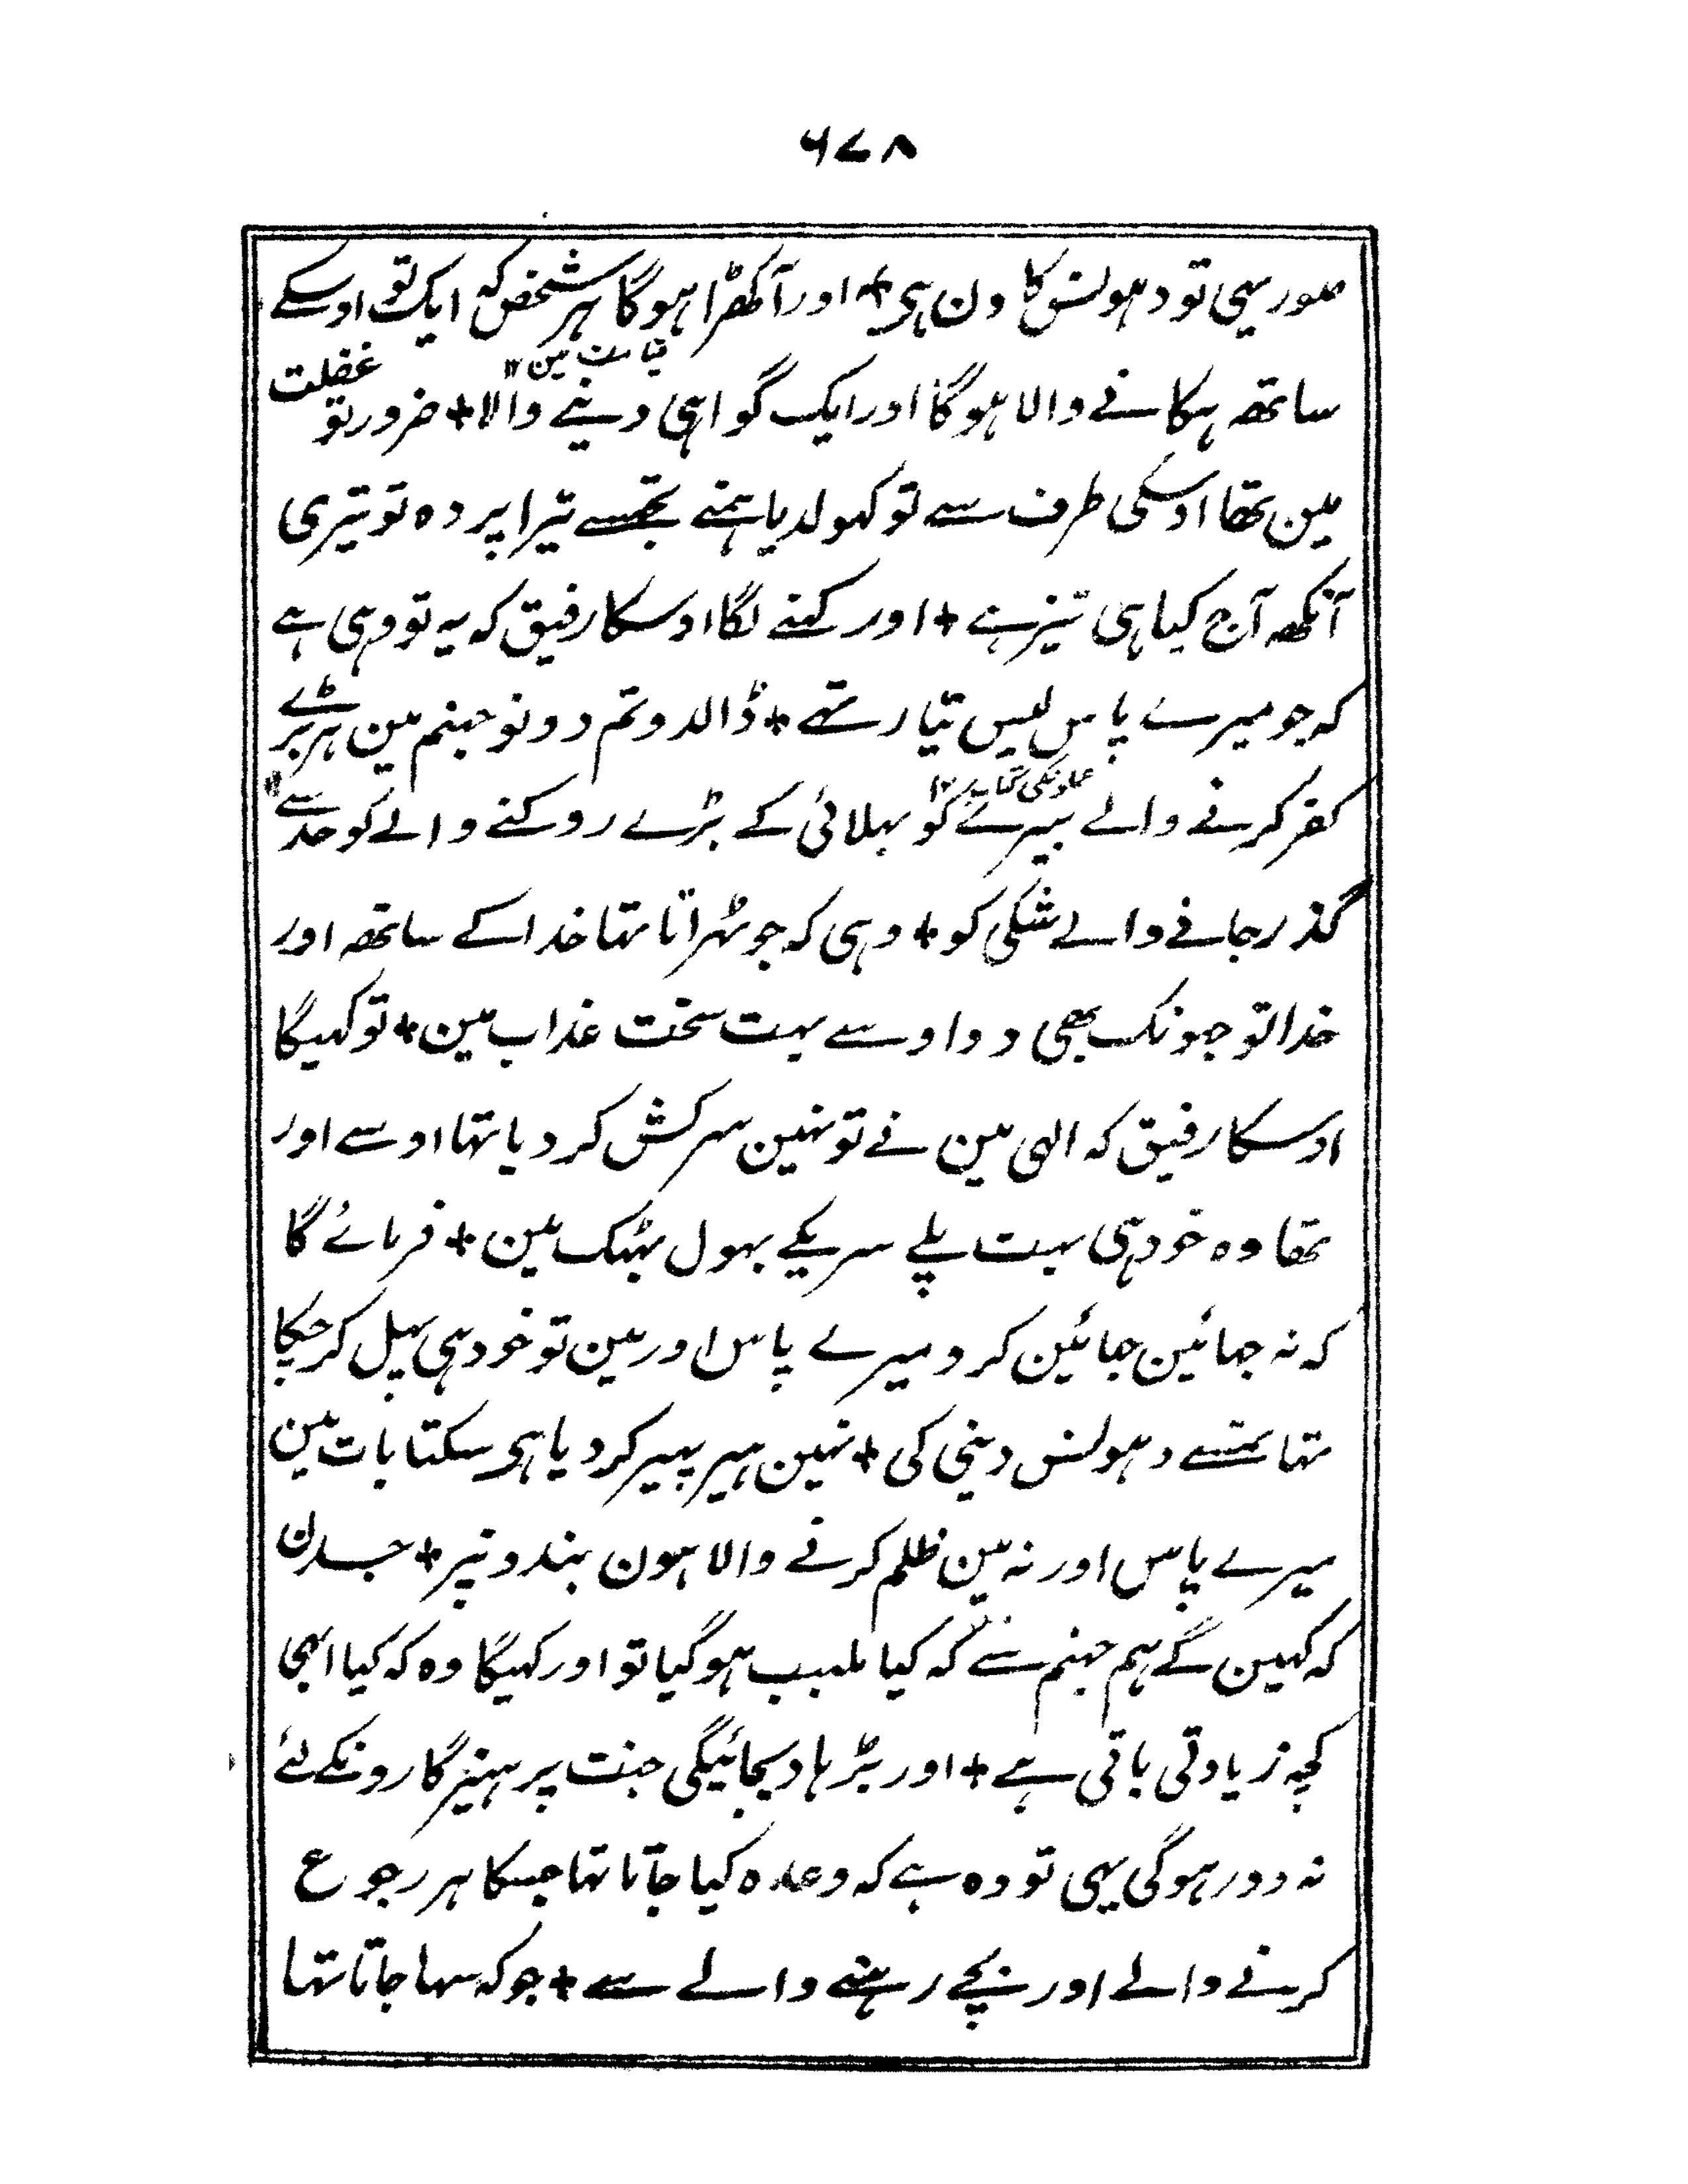 ۶۷۸
صور یہی تو دہونس کا دن ہی + اور آ کھڑا ہوگا ہر شخص کہ ایک تو اوسکے
ساتھہ ہکانے والا ہوگا اور ایک گواہی دینے والا + ضرور تو غفلت
قیامت مین ۱۲
مین تھا اوسکی طرف سے تو کہولدیا ہمنے تجھسے تیرا پردہ تو تیری
آنکھہ آج کیا ہی تیز ہے + اور کہنے لگا اوسکا رفیق کہ یہ تو وہی ہے
کہ جو میرے پاس لیس تیار تہے + ڈالدو تم دونو جہنم مین ہر بڑے
کفر کرنے والے بیری کو بہلائی کے بڑے روکنے والے کو حد سے
گذر جانے والے شکی کو + وہی کہ جو ٹہراتا تہا خدا کے ساتھہ اور
خدا تو جہونک بھی دو اوسے بہت سخت عذاب مین + تو کہیگا
اوسکا رفیق کہ الہی مین نے تو نہین سرکش کر دیا تہا اوسے اور
تھا وہ خود ہی بہت پلے سریکے بہول بہٹک مین + فرمائے گا
کہ نہ جہائین جہائین کرو میرے پاس اور مین تو خود ہی پہل کر چکا
تہا تمسے دہونس دینی کی + نہین ہیر پہیر کر دیا ہی جو سکتا بات مین
میرے پاس اور نہ مین ظلم کرنے والا ہون بندونپر + جسدن
کہ کہین گے ہم جہنم سے کہ کیا ملبب ہوگیا تو اور کہیگا وہ کہ کیا ابھی
کچہ زیادتی باقی ہے + اور بڑہا دیجائیگی جنت پرہیزگارونکے لئے
نہ دور ہوگی یہی تو وہ ہے کہ وعدہ کیا جاتا تہا جسکا ہر رجوع
کرنے والے اور بچے رہنے والے سے + جو کہ سہا جاتا تہا